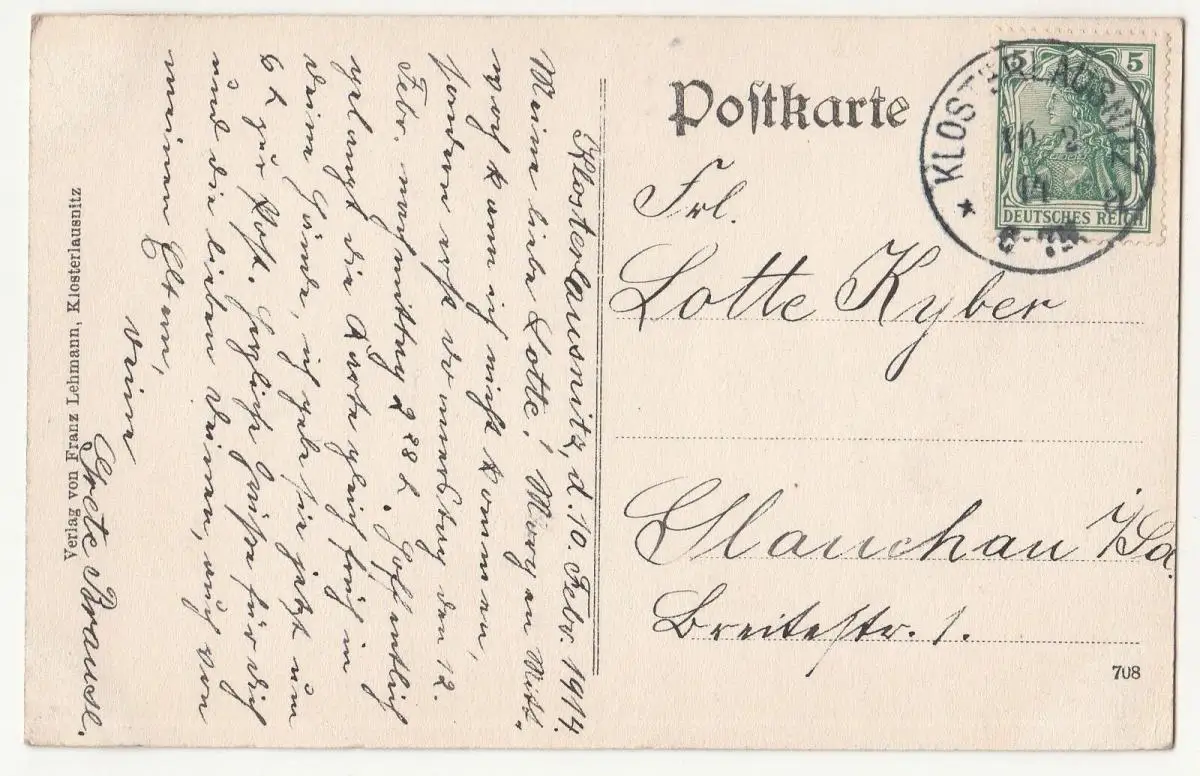 Postkarte
Frl.
Lotte Kyber
Glauchau i/Sa.
Breitestr. 1.
708
5 5
DEUTSCHES REICH
* KLOSTERLAUSNITZ
10 2
14
6-7N.
Klosterlausnitz, d. 10. Febr. 1914.
Meine liebe Lotte! Morgen Mitt.
woch kann ich nicht kommen,
sondern erst Donnerstag den 12.
Febr. nachmittag 2 28 h. Hoffentlich
gelangt die Karte gleich früh in
Deine Hände, ich gebe sie jetzt um
6 h zur Post. Herzliche Grüße für Dich
und die lieben Deinen, auch von
meinen Eltern,
Deine
Grete Brause.
Verlag von Franz Lehmann, Klosterlausnitz